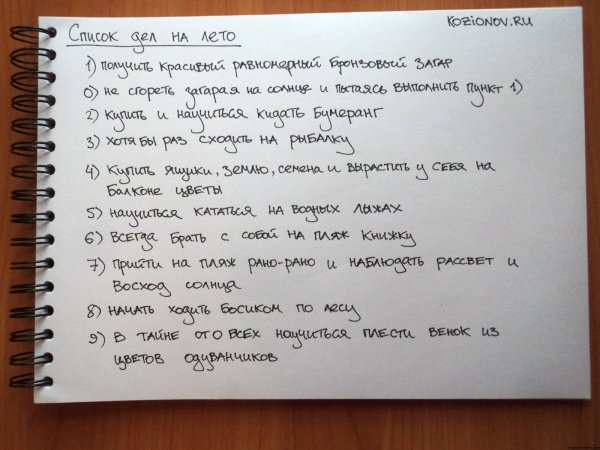 Список дел на лето
KOZIONOV.RU
1) получить красивый равномерный бронзовый загар
0) не сгореть загорая на солнце и пытаясь выполнить пункт 1)
2) купить и научиться кидать бумеранг
3) хотя бы раз сходить на рыбалку
4) купить ящики, землю, семена и вырастить у себя на
балконе цветы
5) научиться кататься на водных лыжах
6) всегда брать с собой на пляж книжку
7) прийти на пляж рано-рано и наблюдать рассвет и
восход солнца
8) начать ходить босиком по лесу
9) в тайне ото всех научиться плести венок из
цветов одуванчиков